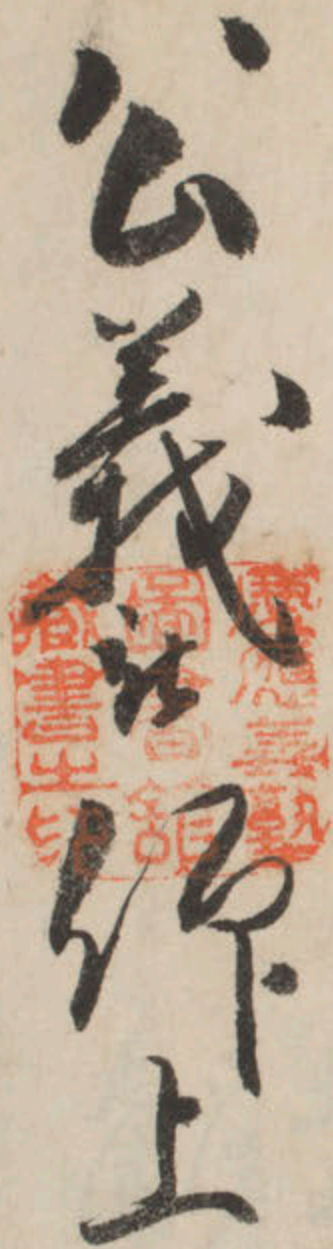 公義被仰上
慶應義塾
圖書館
藏書之印